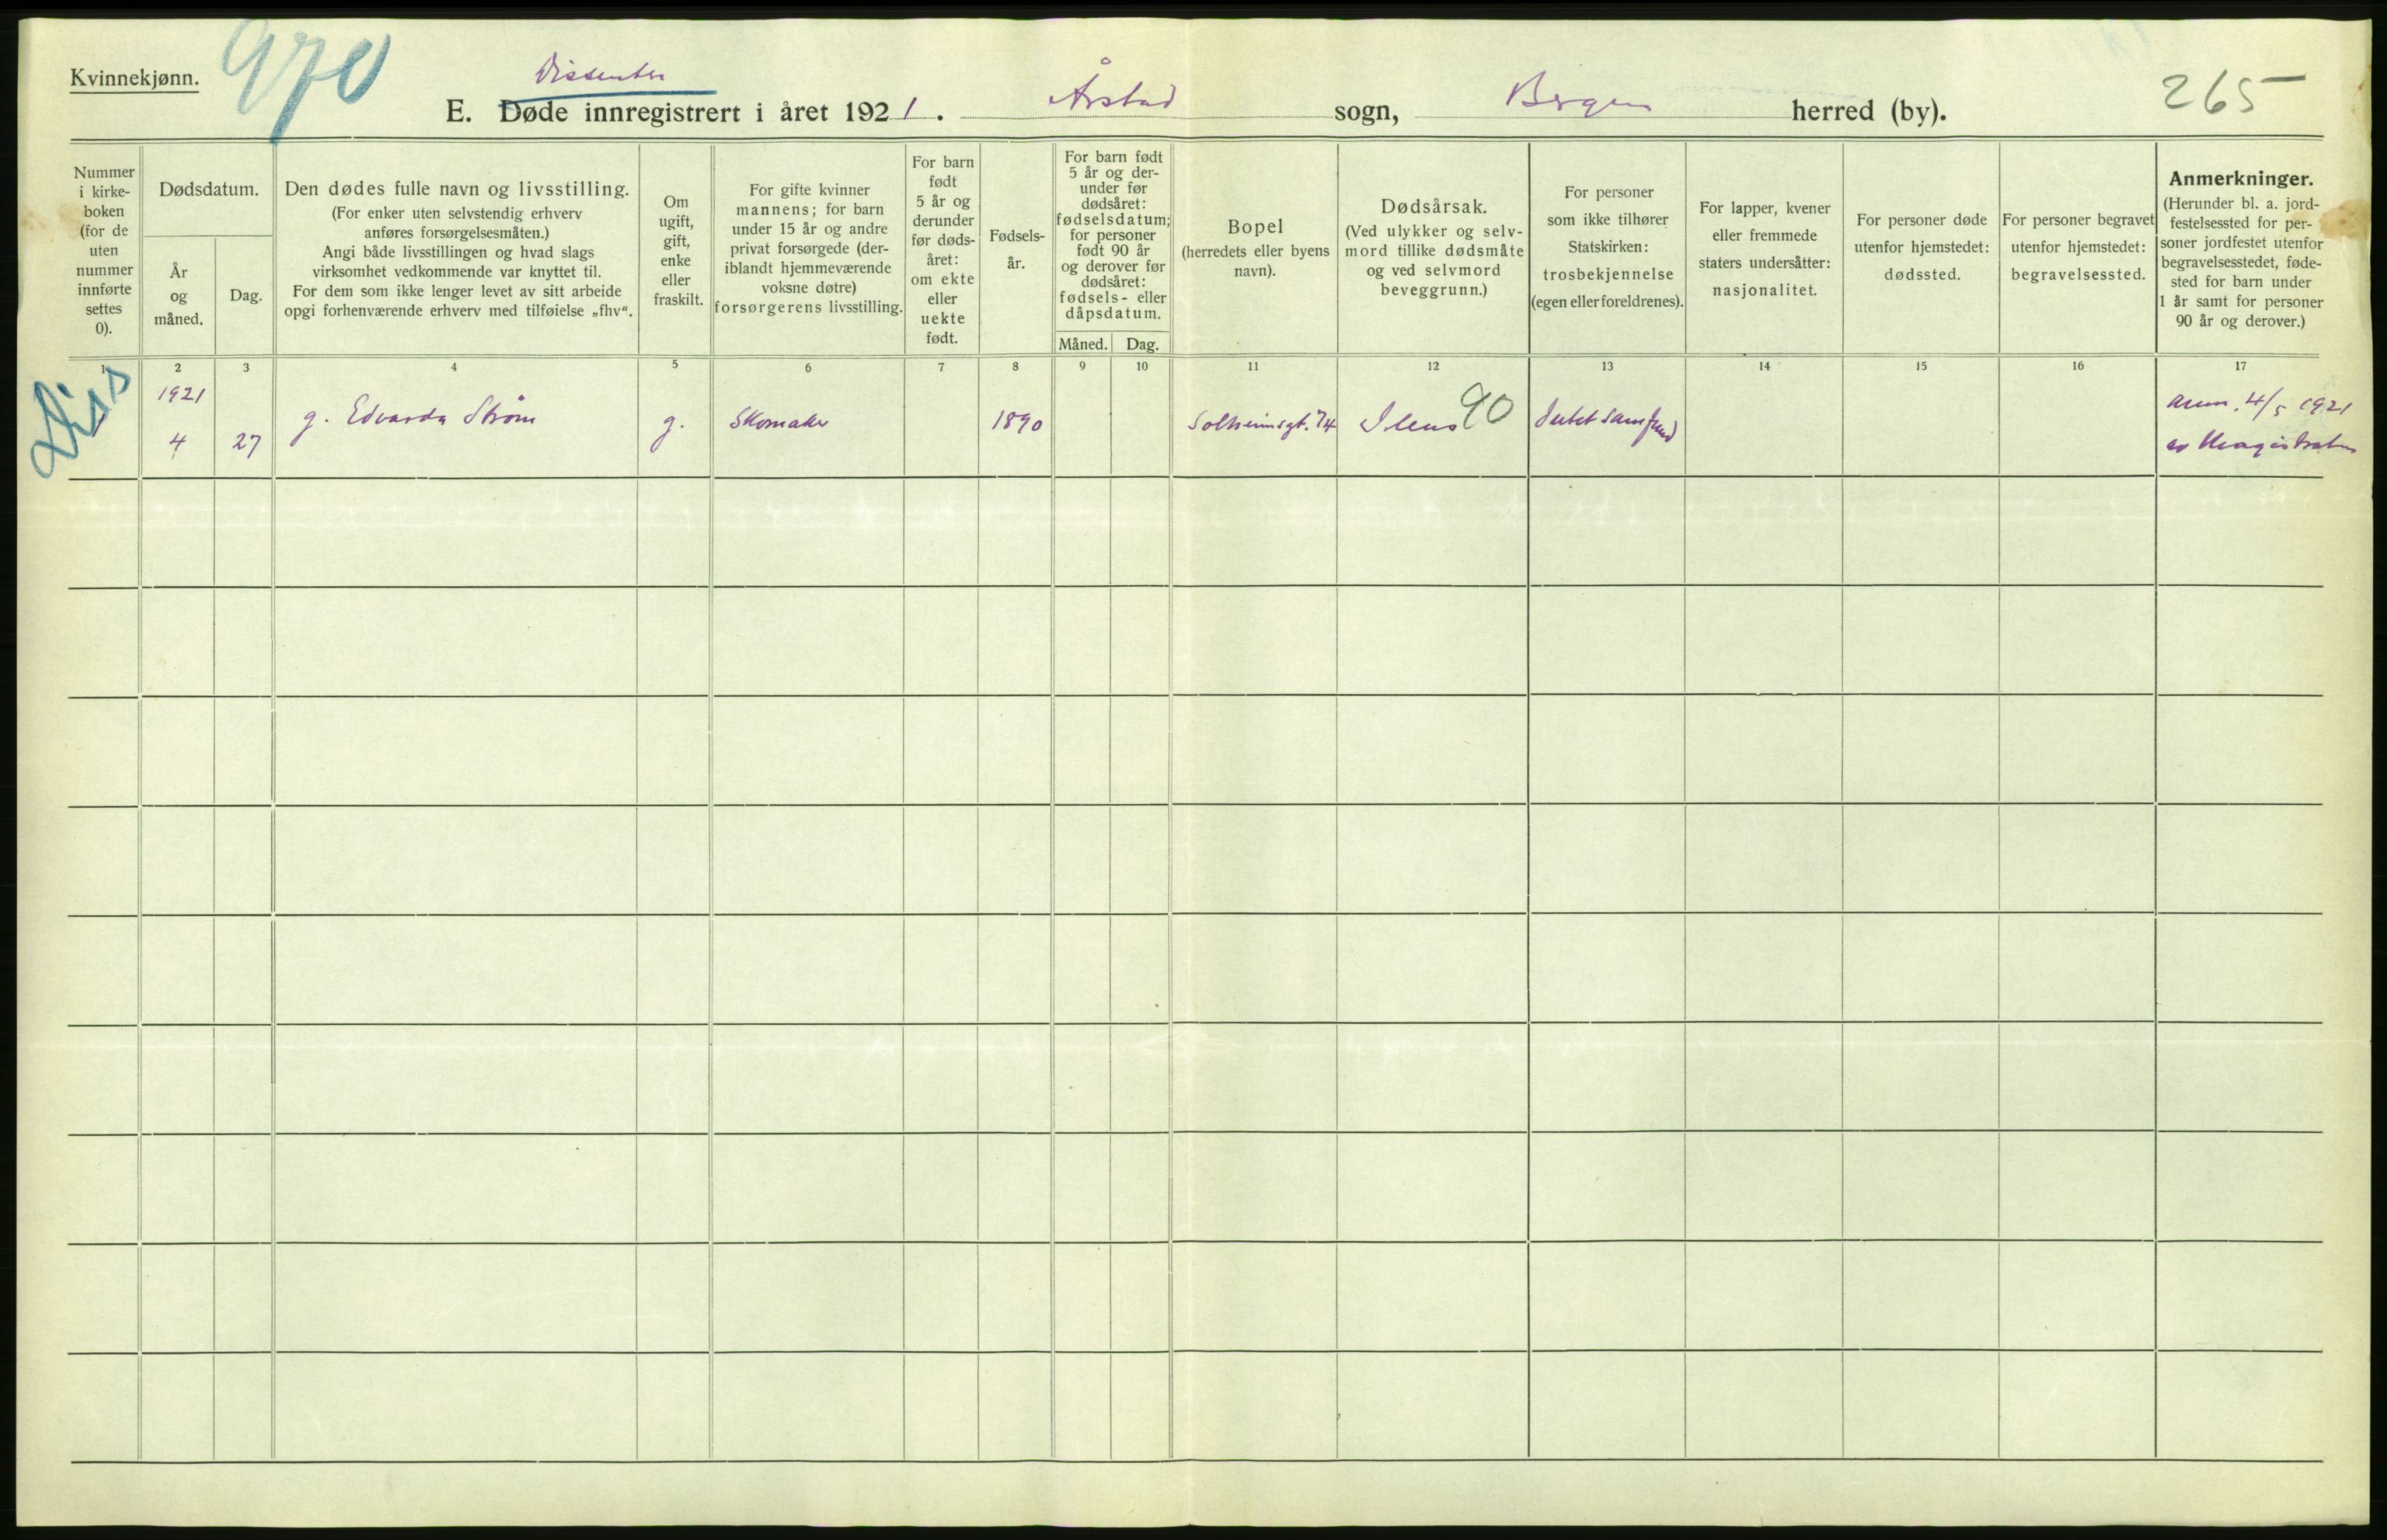 Kvinnekjønn.
970
Dissenter
E. Døde innregistrert i året 1921. Årstad sogn, Bergen herred (by).
265
Nummer
i kirke-
boken
(for de
uten
nummer
innførte
settes
0).
Dødsdatum.
År
og
måned.
Dag.
Den dødes fulle navn og livsstilling.
(For enker uten selvstendig erhverv
anføres forsørgelsesmåten.)
Angi både livsstillingen og hvad slags
virksomhet vedkommende var knyttet til.
For dem som ikke lenger levet av sitt arbeide
opgi forhenværende erhverv med tilføielse „fhv“.
Om
ugift,
gift,
enke
eller
fraskilt.
For gifte kvinner
mannens; for barn
under 15 år og andre
privat forsørgede (der-
iblandt hjemmeværende
voksne døtre)
forsørgerens livsstilling.
For barn
født
5 år og
derunder
før døds-
året:
om ekte
eller
uekte
født.
Fødsels-
år.
For barn født
5 år og der-
under før
dødsåret:
fødselsdatum;
for personer
født 90 år
og derover før
dødsåret:
fødsels- eller
dåpsdatum.
Måned. Dag.
Bopel
(herredets eller byens
navn).
Dødsårsak.
(Ved ulykker og selv-
mord tillike dødsmåte
og ved selvmord
beveggrunn.)
For personer
som ikke tilhører
Statskirken:
trosbekjennelse
(egen eller foreldrenes).
For lapper, kvener
eller fremmede
staters undersåtter:
nasjonalitet.
For personer døde
utenfor hjemstedet:
dødssted.
For personer begravet
utenfor hjemstedet:
begravelsessted.
Anmerkninger.
(Herunder bl. a. jord-
festelsessted for per-
soner jordfestet utenfor
begravelsesstedet, føde-
sted for barn under
1 år samt for personer
90 år og derover.)
1 2 3 4 5 6 7 8 9 10 11 12 13 14 15 16 17
Diss
1921
4 27 g. Edvarda Strøm g. Skomaker 1890 Solheimsgt. 74 Ileus 90 Intet samfund
anm. 4/5 1921
av Magistraten